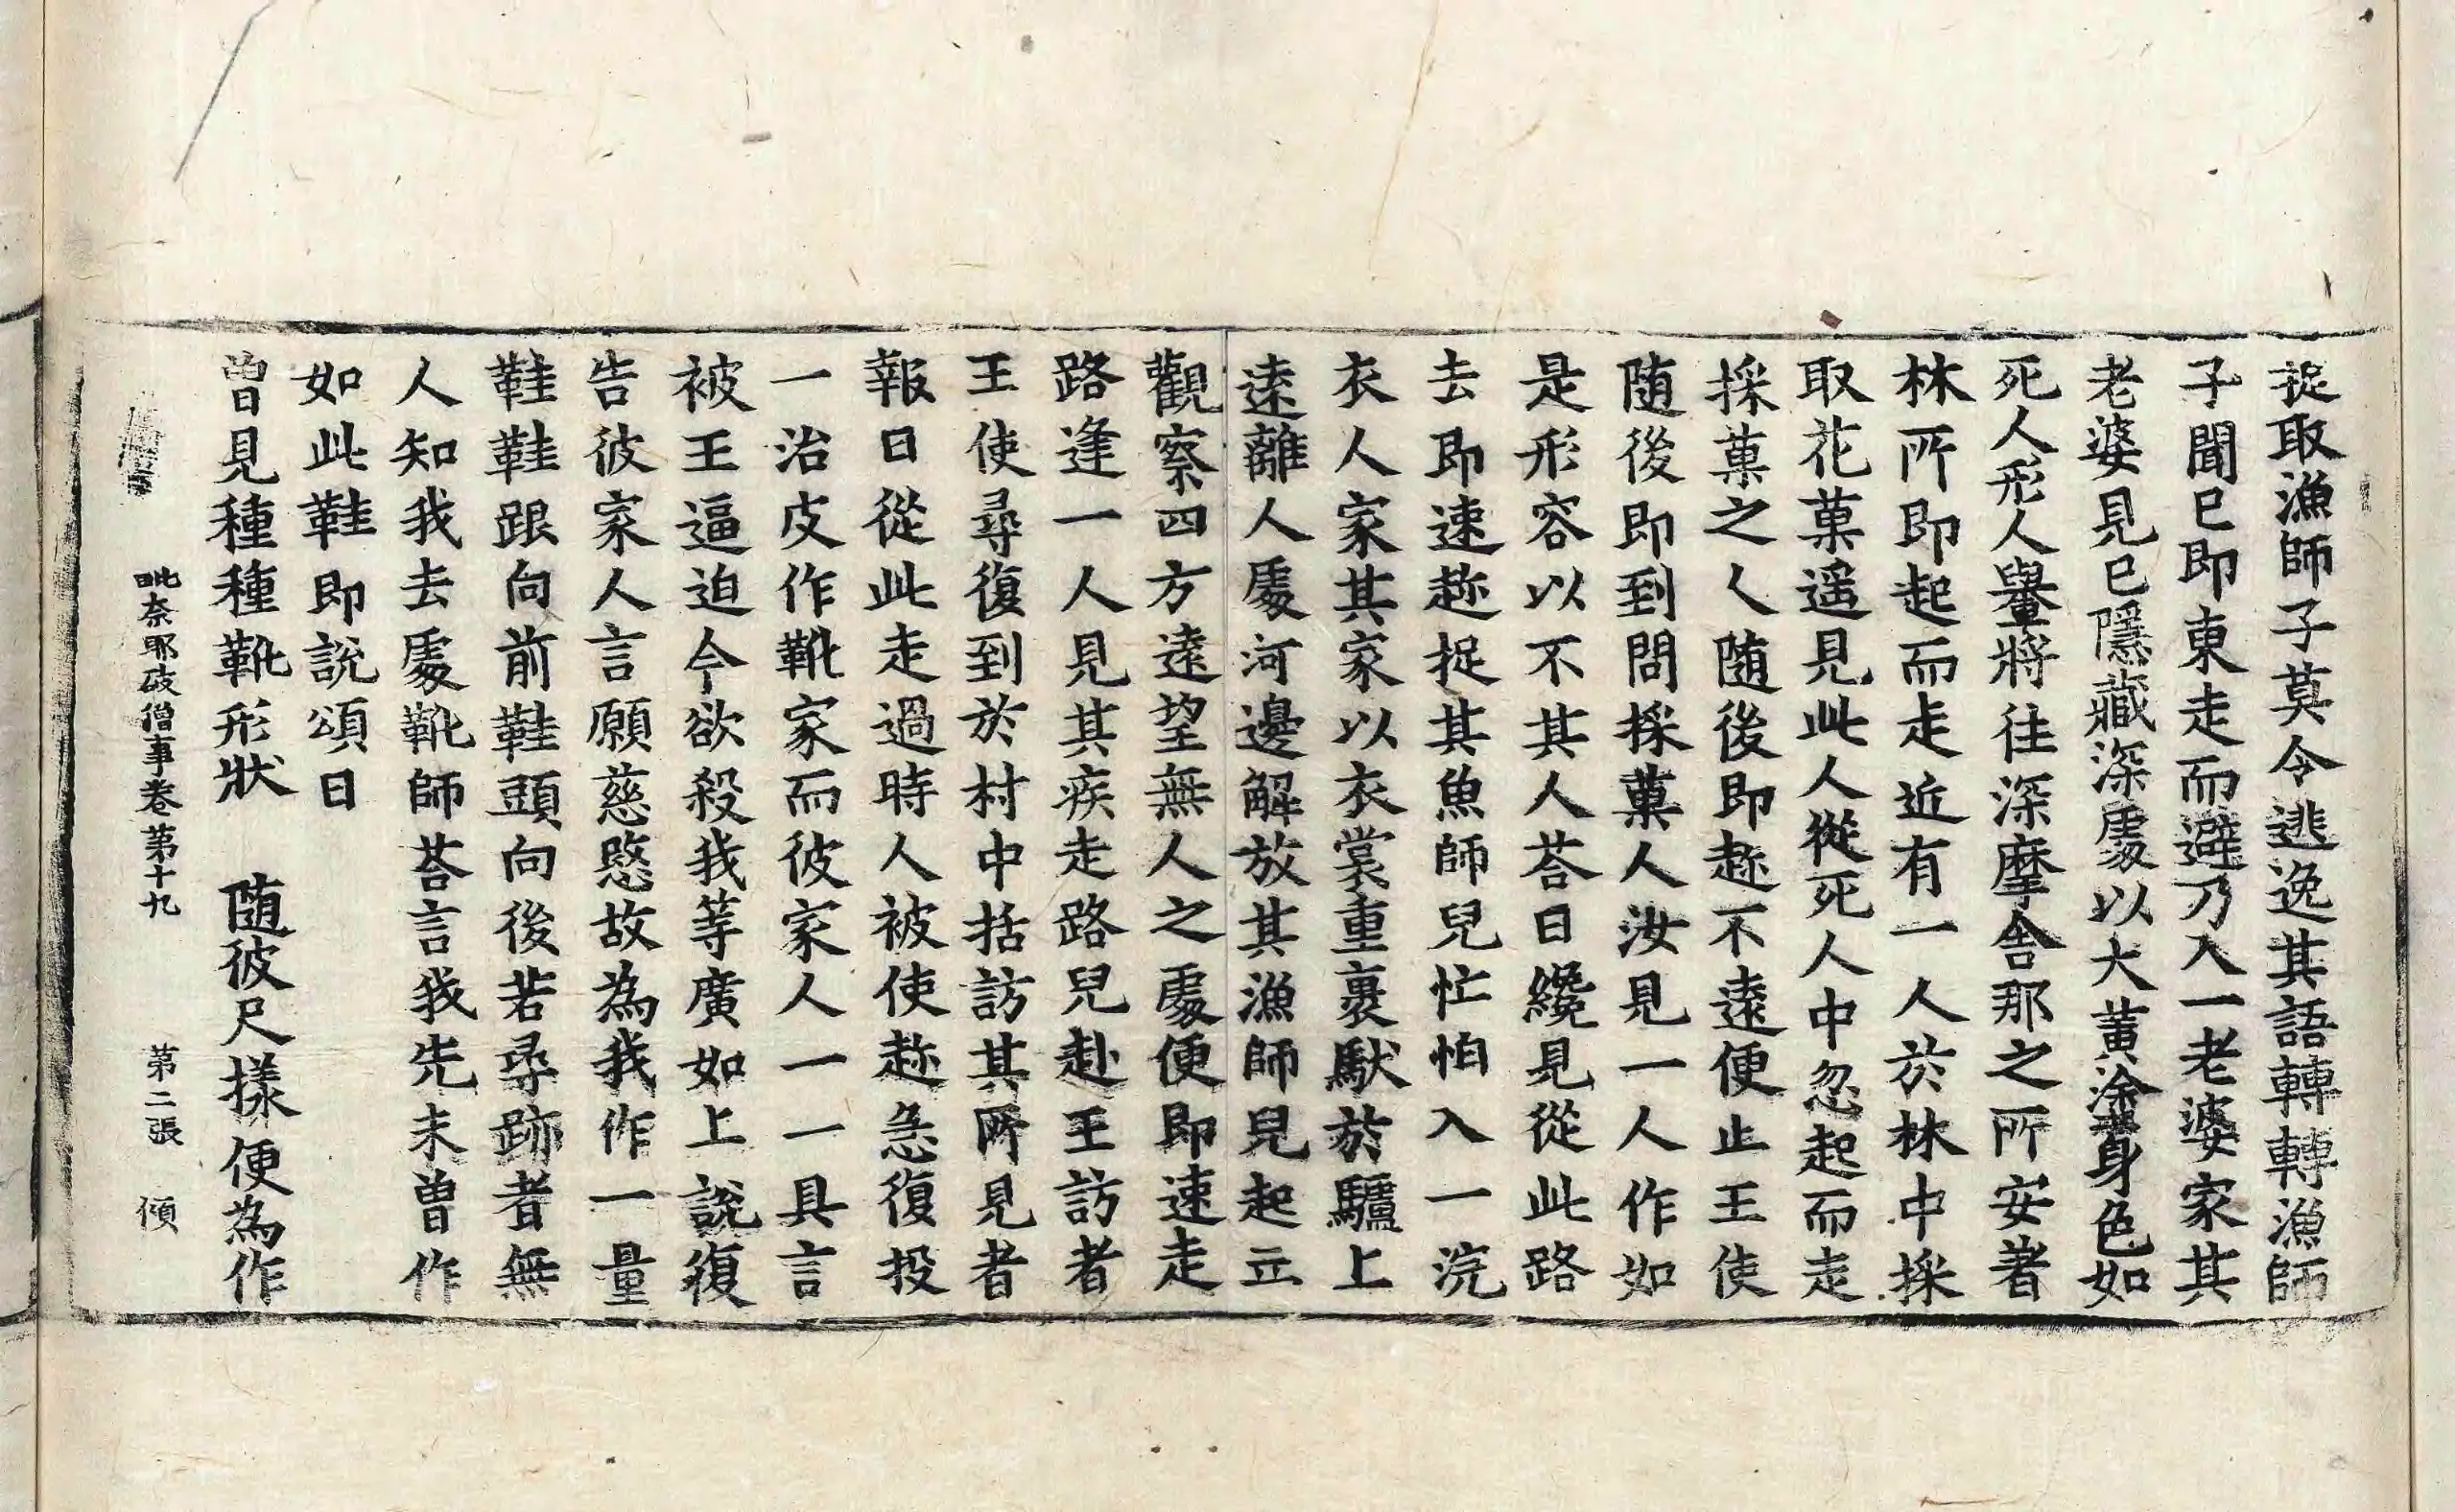 捉取漁師子莫令逃逸其語轉轉漁師
子聞已即東走而避乃入一老婆家其
老婆見已隱藏深處以大黃塗身色如
死人形人轝將往深摩舍那之所安著
林所即起而走近有一人於林中採
取花菓遥見此人從死人中忽起而走
採菓之人隨後即趂不遠便止王使
隨後即到問採菓人汝見一人作如
是形容以不其人荅曰纔見從此路
去即速趂捉其魚師兒忙怕入一浣
衣人家其家以衣裳重裹馱於驢上
遠離人處河邊解放其漁師兒起立
觀察四方遠望無人之處便即速走
路逢一人見其疾走路兒赴王訪者
王使尋復到於村中括訪其所見者
報曰從此走過時人被使趂急復投
一治皮作靴家而彼家人一一具言
被王逼迫今欲殺我等廣如上說復
告彼家人言願慈愍故為我作一量
鞋鞋跟向前鞋頭向後若尋跡者無
人知我去處靴師荅言我先未曾作
如此鞋即說頌曰
曾見種種靴形狀　隨彼尺樣便為作
毗奈耶破僧事卷第十九　第二張　傾